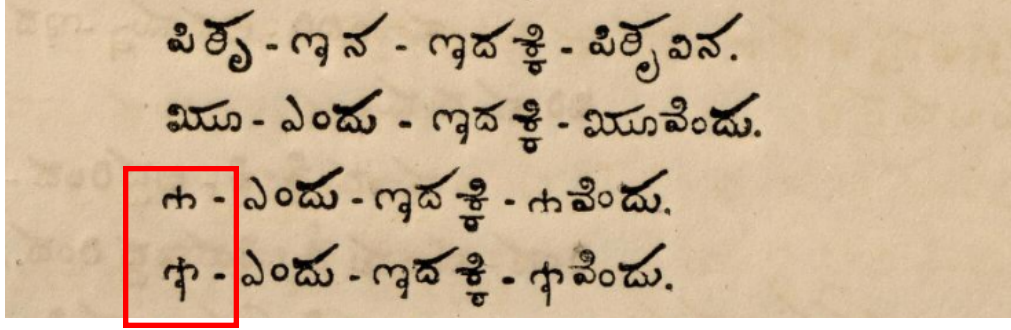 ಪಿತೃ - ಇನ - ಇದಕ್ಕೆ - ಪಿತೃವಿನ.
ೠ - ಎಂದು - ಇದಕ್ಕೆ - ೠವೆಂದು.
ಌ - ಎಂದು - ಇದಕ್ಕೆ - ಌವೆಂದು.
ೡ - ಎಂದು - ಇದಕ್ಕೆ - ೡವೆಂದು.